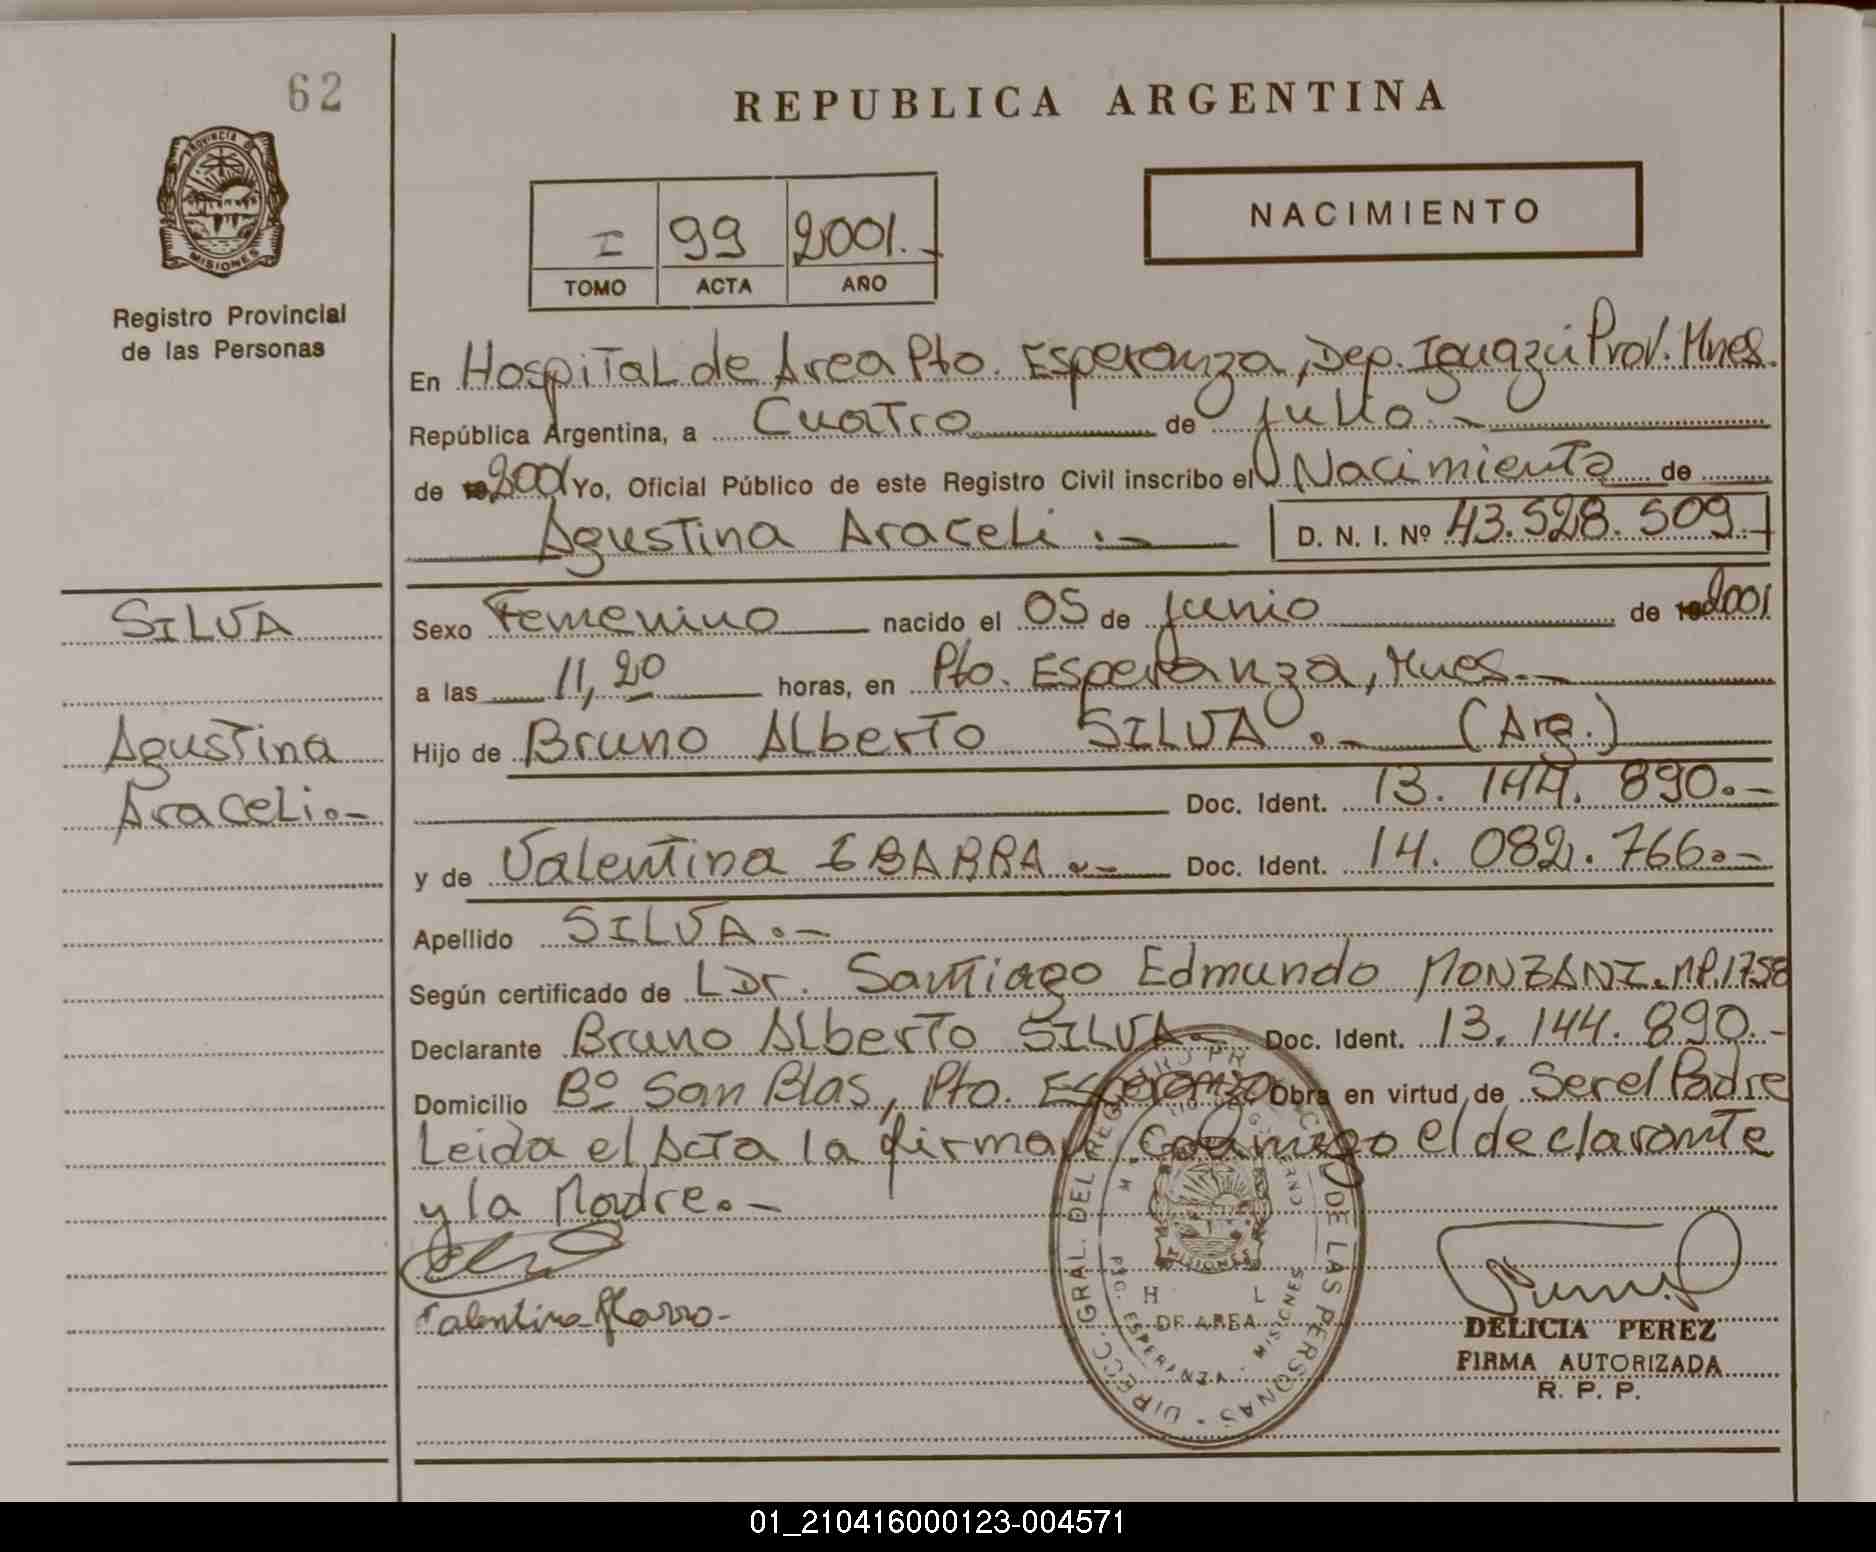 62
REPUBLICA ARGENTINA
PROVINCIA DE
MISIONES
Registro Provincial
de las Personas
I 99 2001.-
TOMO ACTA AÑO
NACIMIENTO
En Hospital de Area Pto. Esperanza, Dep. Iguazú Prov. Mnes.
República Argentina, a Cuatro de Julio.-
de 2001 Yo, Oficial Público de este Registro Civil inscribo el Nacimiento de
Agustina Araceli.- D. N. I. Nº 43.528.509.-
SILVA
Agustina
Araceli.-
Sexo Femenino nacido el 05 de Junio de 2001
a las 11,20 horas, en Pto. Esperanza, Mnes.-
Hijo de Bruno Alberto SILVA.- (Arg.)
Doc. Ident. 13.144.890.-
y de Valentina IBARRA.- Doc. Ident. 14.082.766.-
Apellido SILVA.-
Según certificado de Dr. Santiago Edmundo MONZANI.MP.1758
Declarante Bruno Alberto SILVA.- Doc. Ident. 13.144.890.-
Domicilio Bº San Blas, Pto. Esperanza Obra en virtud de Ser el Padre
Leida el Acta la firman Conmigo el declarante
y la Madre.-
DIRECC. GRAL. DEL DE LAS PERSONAS
MISIONES
H L
DE AREA
ESPERANZA - MISIONES
DELICIA PEREZ
FIRMA AUTORIZADA
R. P. P.
01_210416000123-004571